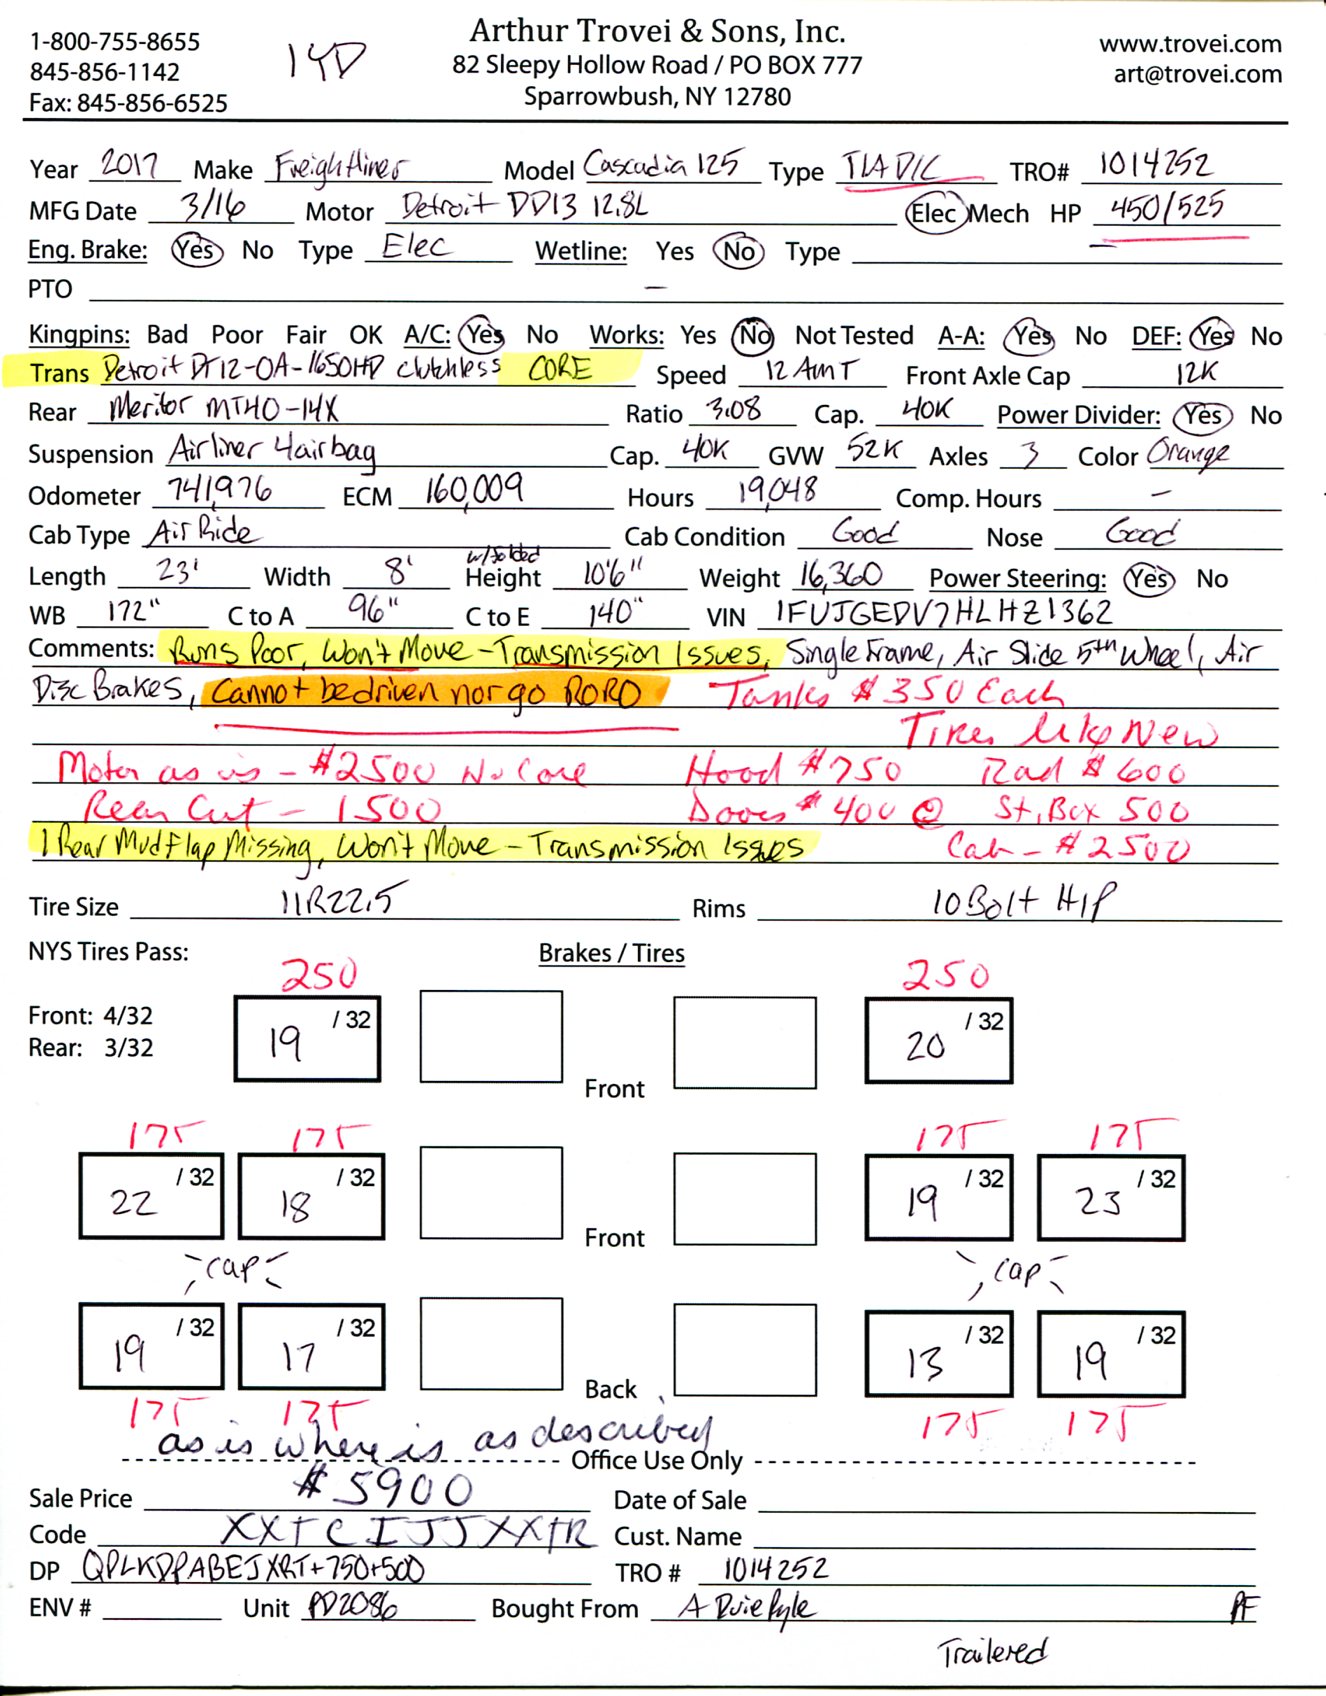 1-800-755-8655
845-856-1142
Fax: 845-856-6525
1YD
Arthur Trovei & Sons, Inc.
82 Sleepy Hollow Road / PO BOX 777
Sparrowbush, NY 12780
www.trovei.com
art@trovei.com
Year 2017 Make Freightliner Model Cascadia 125 Type TLADIC TRO# 1014252
MFG Date 3/16 Motor Detroit DD13 12.8L Elec Mech HP 450/525
Eng. Brake: Yes No Type Elec Wetline: Yes No Type
PTO —
Kingpins: Bad Poor Fair OK A/C: Yes No Works: Yes No Not Tested A-A: Yes No DEF: Yes No
Trans Detroit DT12-OA-1650HD clutchless CORE Speed 12 AMT Front Axle Cap 12K
Rear Meritor MT40-14X Ratio 3.08 Cap. 40K Power Divider: Yes No
Suspension Airliner 4airbag Cap. 40K GVW 52K Axles 3 Color Orange
Odometer 741,976 ECM 160,009 Hours 19,048 Comp. Hours —
Cab Type Air Ride Cab Condition Good Nose Good
w/folded
Length 23' Width 8' Height 10'6" Weight 16,360 Power Steering: Yes No
WB 172" C to A 96" C to E 140" VIN 1FUJGEDV7HLHZ1362
Comments: Runs Poor, Won't Move - Transmission Issues, Single Frame, Air Slide 5th Wheel, Air
Disc Brakes, Cannot be driven nor go RORO Tanks $350 Each
Tires like New
Motor as is - $2500 No Core Hood $750 Rad $600
Rear Cut - 1500 Doors $400 @ St. Box 500
1 Rear Mud Flap Missing, Won't Move - Transmission Issues Cab - $2500
Tire Size 11R22.5 Rims 10 Bolt H1P
NYS Tires Pass: Brakes / Tires
250 250
Front: 4/32
Rear: 3/32
19 /32 20 /32
Front
175 175 175 175
22 /32 18 /32 19 /32 23 /32
Front
cap cap
19 /32 17 /32 13 /32 19 /32
Back
175 175 175 175
as is where is as described
Office Use Only
Sale Price $5900 Date of Sale
Code XXTCIJJXXTR Cust. Name
DP QPLKDPABEJXRT+750+500 TRO # 1014252
ENV # Unit PD2086 Bought From A Duie Pyle PF
Trailered